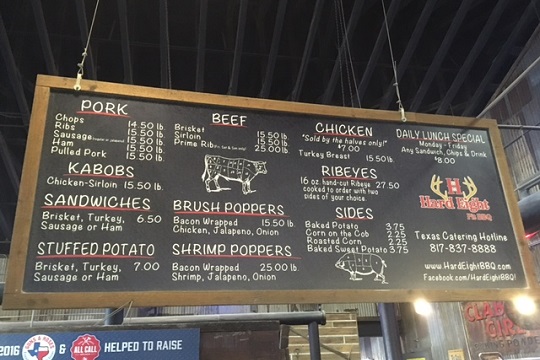 PORK
Chops 14.50 lb.
Ribs 15.50 lb.
Sausage 15.50 lb.
Ham 15.50 lb.
Pulled Pork 15.50 lb.
KABOBS
Chicken-Sirloin 15.50 lb.
SANDWICHES
Brisket, Turkey, 6.50
Sausage or Ham
STUFFED POTATO
Brisket, Turkey, 7.00
Sausage or Ham
BEEF
Brisket 15.50 lb.
Sirloin 15.50 lb.
Prime Rib (Fri, Sat & Sun only) 15.50 lb.
BRUSH POPPERS
Bacon Wrapped 15.50 lb.
Chicken, Jalapeno, Onion
SHRIMP POPPERS
Bacon Wrapped 25.00 lb.
Shrimp, Jalapeno, Onion
CHICKEN
"Sold by the halves only!"
$7.00
Turkey Breast 15.50 lb.
RIBEYES
16 oz hand-cut Ribeye 27.50
cooked to order with two
sides of your choice.
SIDES
Baked Potato 3.75
Corn on the Cob 2.25
Roasted Corn 2.25
Baked Sweet Potato 3.75
DAILY LUNCH SPECIAL
Monday - Friday
Any Sandwich, Chips & Drink
$8.00
H
Hard Eight
Pit BBQ
Texas Catering Hotline
817-837-8888
www.HardEightBBQ.com
Facebook.com/HardEightBBQ
2016
&
ALL CALL
HELPED TO RAISE